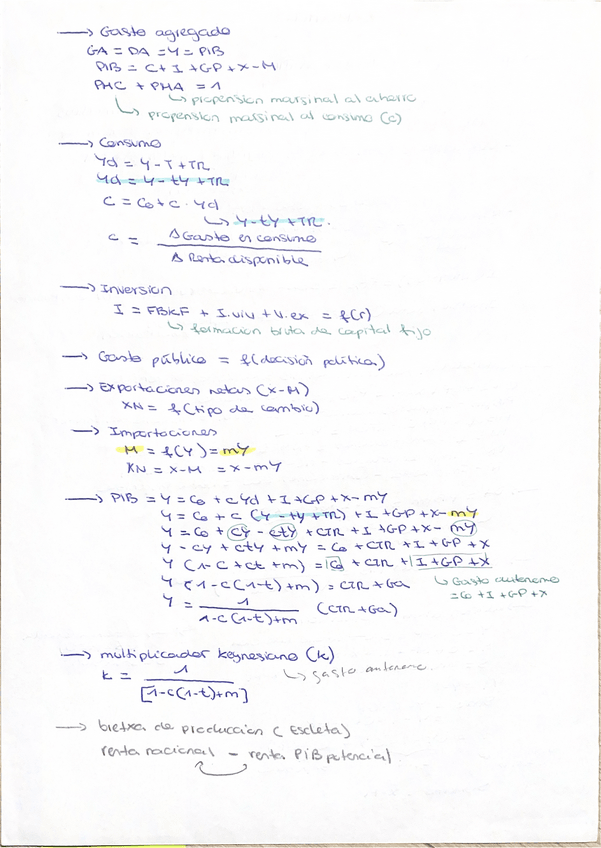 → Gasto agregado
GA = DA = Y = PIB
PIB = C + I + GP + X - M
PMC + PMA = 1
↳ propension marginal al ahorro
↳ propension marginal al consumo (c)
→ Consumo
Yd = Y - T + TR
Yd = Y - tY + TR
C = Co + c · Yd
↳ Y - tY + TR.
c = Δ Gasto en consumo / Δ Renta disponible
→ Inversion
I = FBKF + I.viv + V.ex = f(r)
↳ formacion bruta de capital fijo
→ Gasto público = f(decisión política)
→ Exportaciones netas (X-M)
XN = f(tipo de cambio)
→ Importaciones
M = f(Y) = mY
XN = X - M = X - mY
→ PIB = Y = Co + cYd + I + GP + X - mY
Y = Co + c (Y - tY + TR) + I + GP + X - mY
Y = Co + cY - ctY + cTR + I + GP + X - mY
Y - cY + ctY + mY = Co + cTR + I + GP + X
Y (1 - c + ct + m) = Co + cTR + I + GP + X
Y (1 - c(1-t) + m) = cTR + Ga
↳ Gasto autonomo
= Co + I + GP + X
Y = 1 / 1 - c(1-t) + m (cTR + Ga)
→ multiplicador keynesiano (k)
↳ gasto autonomo.
k = 1 / [1 - c(1-t) + m]
→ bretxa de produccion (Escleta)
renta nacional - renta PIB potencial